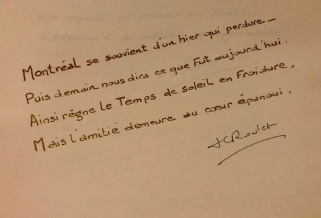 Montréal se souvient d'un hier qui perdure_
Puis demain nous dira ce que Fut aujourd'hui.
Ainsi règne le Temps de soleil en Froidure.
Mais l'amitié demeure au cœur épanoui.